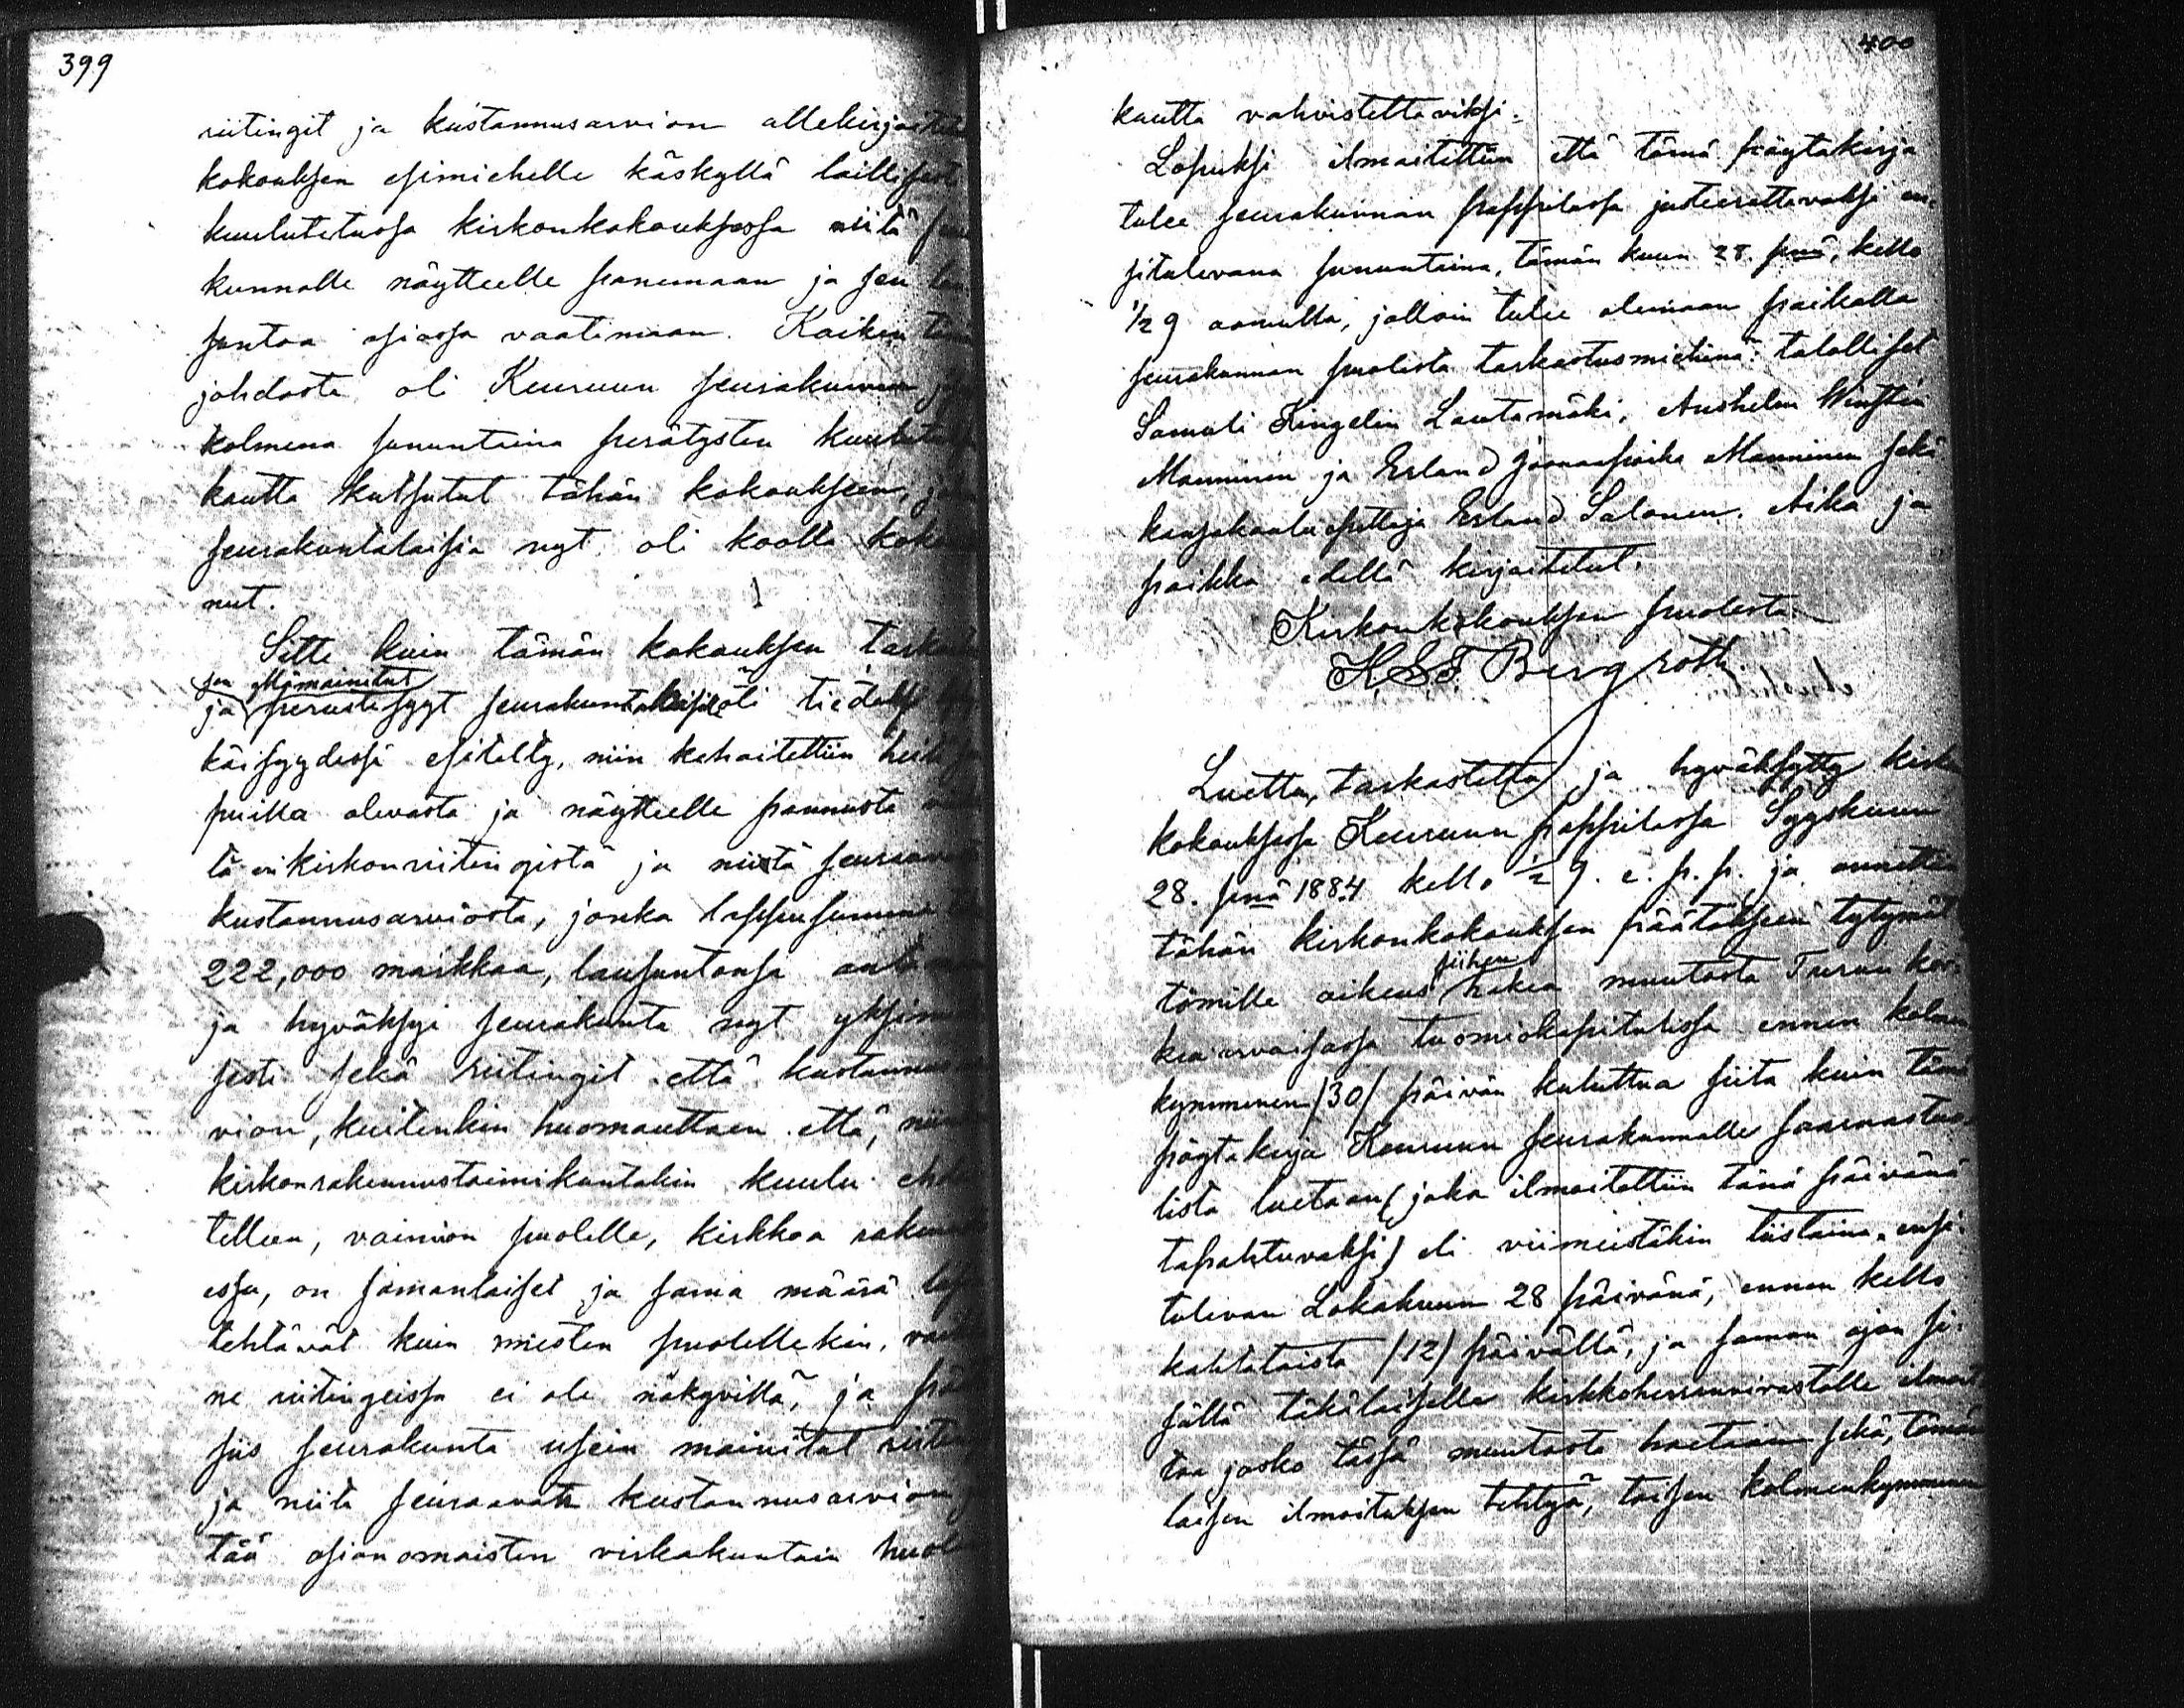 399
riitingit ja kustannusarvion allekirjoitta
kokouksen esimiehelle käskyllä laillisest
kuulutetussa kirkonkokouksessa niitä seu
kunnalle näytteelle panemaan ja sen lau
suntoa asiassa vaatimaan. Kaiken tämän
johdosta oli Keuruun seurakunnan
kolmena sunnuntaina perätysten kuulutuksen
kautta kutsutut tähän kokoukseen, jo
seurakuntalaisia nyt oli koolla koko
nut.
Sitte kuin tämän kokouksen tarko
sen ylimainitut
ja perustesyyt seurakuntalaisille oli tiedoksi
käisyydessä esitelty, niin kehoitettiin heitä
puilla olevasta ja näytteelle pannusta
tä en kirkonriitingistä ja niistä seuraava
kustannusarviosta, jonka loppusumma
222,000 markkaa, lausuntonsa anta
ja hyväksyi seurakunta nyt yksim
sesti sekä riitingit että kustannus
vion, kuitenkin huomauttaen että, niin
kirkonrakennustoimikuntakin kuulu eh
telleen, vaimon puolelle, kirkkoa raken
essa, on samanlaiset ja sama määrä
tehtävät kuin miesten puolellekin, vaik
ne riitingeissa ei ole näkyvillä, ja pää
siis seurakunta usein mainitut riitin
ja niitä seuraavan kustannusarvion
tää asianomaisten virkakuntain huol
400
kautta vahvistettaviksi.
Lopuksi ilmoitettiin että tämä pöytäkirja
tulee seurakunnan pappilassa justeerattavaksi en-
situlevana sunnuntaina, tämän kuun 28 pnä, kello
1/2 9 aamulla, jolloin tulee olemaan paikalla
seurakunnan puolesta tarkastusmiehinä: talolliset
Samuli Kingelin Lautamäki, Anshelm
Manninen ja Erland Joonaspoika Manninen sekä
kansakoulu opettaja Erland Salonen. Aika ja
paikka edellä kirjoitetut.
Kirkonkokouksen puolesta:
K. S. F. Bergroth.
Luettu, tarkastettu ja hyväksytty kirkon
kokouksessa Keuruun pappilassa Syyskuun
28. pnä 1884 kello 1/2 9. e. p. p. ja annettiin
tähän kirkonkokouksen päätökseen tytymät
siihen
tömille oikeus hakea muutosta Turun kor-
kea arvoisassa tuomiokapitulissa ennen kolmen
kymmenen /30/ päivän kuluttua siitä kuin tämä
pöytäkirja Keuruun seurakunnalle saarnastuo-
lista luetaan (joka ilmoitettiin tänä päivänä
tapahtuvaksi) eli viimeistäkin tiistaina, ensi-
tulevan Lokakuun 28 päivänä, ennen kello
kahtatoista /12/ päivällä, ja saman ajan si-
sällä täkäläiselle kirkkoherranvirastolle ilmoit
taa josko tässä muutosta haetaan sekä, tämän
laisen ilmoituksen tehtyä, toisen kolmenkymmenen